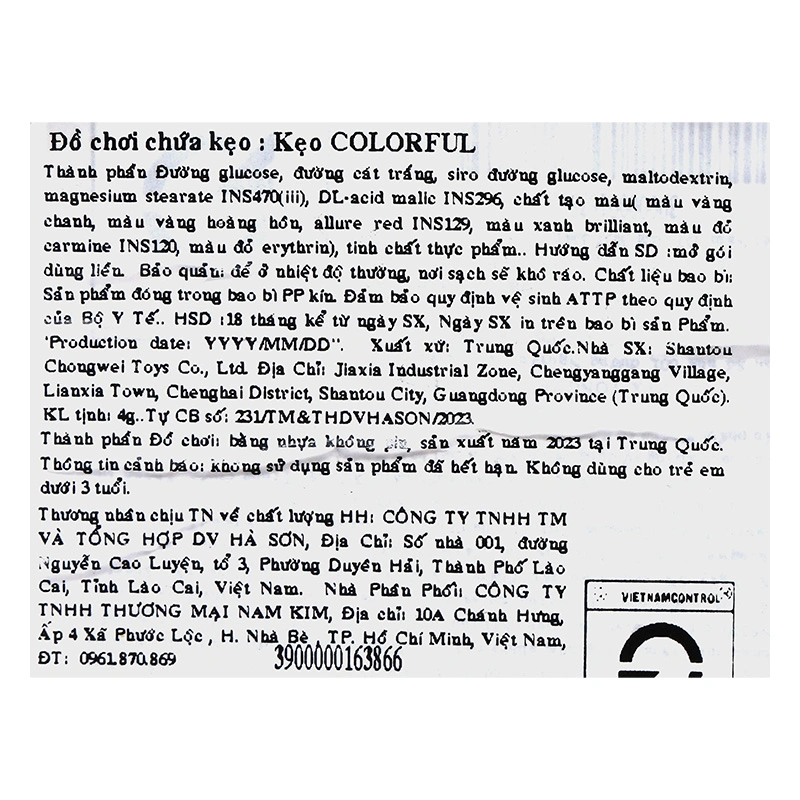 Đồ chơi chứa kẹo : Kẹo COLORFUL
Thành phần Đường glucose, đường cát trắng, siro đường glucose, maltodextrin,
magnesium stearate INS470(iii), DL-acid malic INS296, chất tạo màu( màu vàng
chanh, màu vàng hoàng hôn, allure red INS129, màu xanh brilliant, màu đỏ
carmine INS120, màu đỏ erythrin), tinh chất thực phẩm.. Hướng dẫn SD :mở gói
dùng liền. Bảo quản: để ở nhiệt độ thường, nơi sạch sẽ khô ráo. Chất liệu bao bì:
Sản phẩm đóng trong bao bì PP kín. Đảm bảo quy định vệ sinh ATTP theo quy định
của Bộ Y Tế.. HSD :18 tháng kể từ ngày SX, Ngày SX in trên bao bì sản Phẩm.
"Production date: YYYY/MM/DD". Xuất xứ: Trung Quốc.Nhà SX: Shantou
Chongwei Toys Co., Ltd. Địa Chỉ: Jiaxia Industrial Zone, Chengyanggang Village,
Lianxia Town, Chenghai District, Shantou City, Guangdong Province (Trung Quốc).
KL tịnh: 4g..Tự CB số: 231/TM&THDVHASON/2023.
Thành phần Đồ chơi: bằng nhựa không pin, sản xuất năm 2023 tại Trung Quốc.
Thông tin cảnh báo: không sử dụng sản phẩm đã hết hạn. Không dùng cho trẻ em
dưới 3 tuổi.
Thương nhân chịu TN về chất lượng HH: CÔNG TY TNHH TM
VÀ TỔNG HỢP DV HÀ SƠN, Địa Chỉ: Số nhà 001, đường
Nguyễn Cao Luyện, tổ 3, Phường Duyên Hải, Thành Phố Lào
Cai, Tỉnh Lào Cai, Việt Nam. Nhà Phân Phối: CÔNG TY
TNHH THƯƠNG MẠI NAM KIM, Địa chỉ: 10A Chánh Hưng,
Ấp 4 Xã Phước Lộc , H. Nhà Bè , TP. Hồ Chí Minh, Việt Nam,
ĐT: 0961.870.869
3900000163866
VIETNAMCONTROL